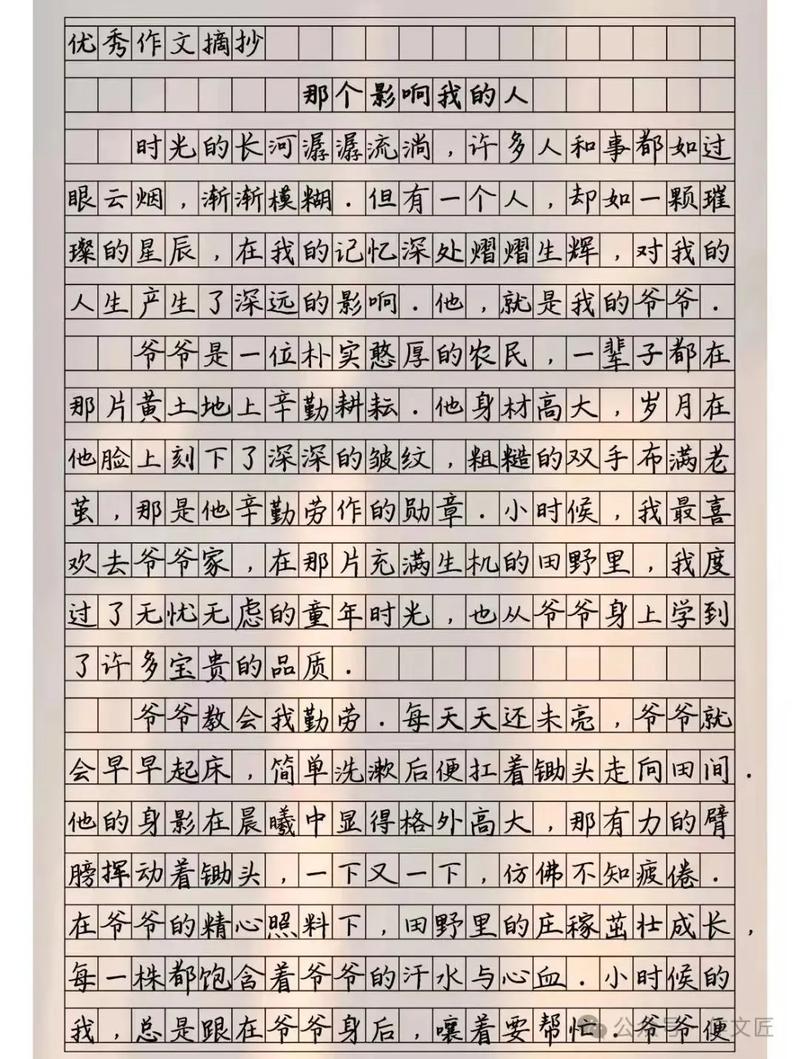 优秀作文摘抄
那个影响我的人
时光的长河潺潺流淌，许多人和事都如过
眼云烟，渐渐模糊．但有一个人，却如一颗璀
璨的星辰，在我的记忆深处熠熠生辉，对我的
人生产生了深远的影响．他，就是我的爷爷．
爷爷是一位朴实憨厚的农民，一辈子都在
那片黄土地上辛勤耕耘．他身材高大，岁月在
他脸上刻下了深深的皱纹，粗糙的双手布满老
茧，那是他辛勤劳作的勋章．小时候，我最喜
欢去爷爷家，在那片充满生机的田野里，我度
过了无忧无虑的童年时光，也从爷爷身上学到
了许多宝贵的品质．
爷爷教会我勤劳．每天天还未亮，爷爷就
会早早起床，简单洗漱后便扛着锄头走向田间．
他的身影在晨曦中显得格外高大，那有力的臂
膀挥动着锄头，一下又一下，仿佛不知疲倦．
在爷爷的精心照料下，田野里的庄稼茁壮成长，
每一株都饱含着爷爷的汗水与心血．小时候的
我，总是跟在爷爷身后，嚷着要帮忙．爷爷便
公众号 文匠